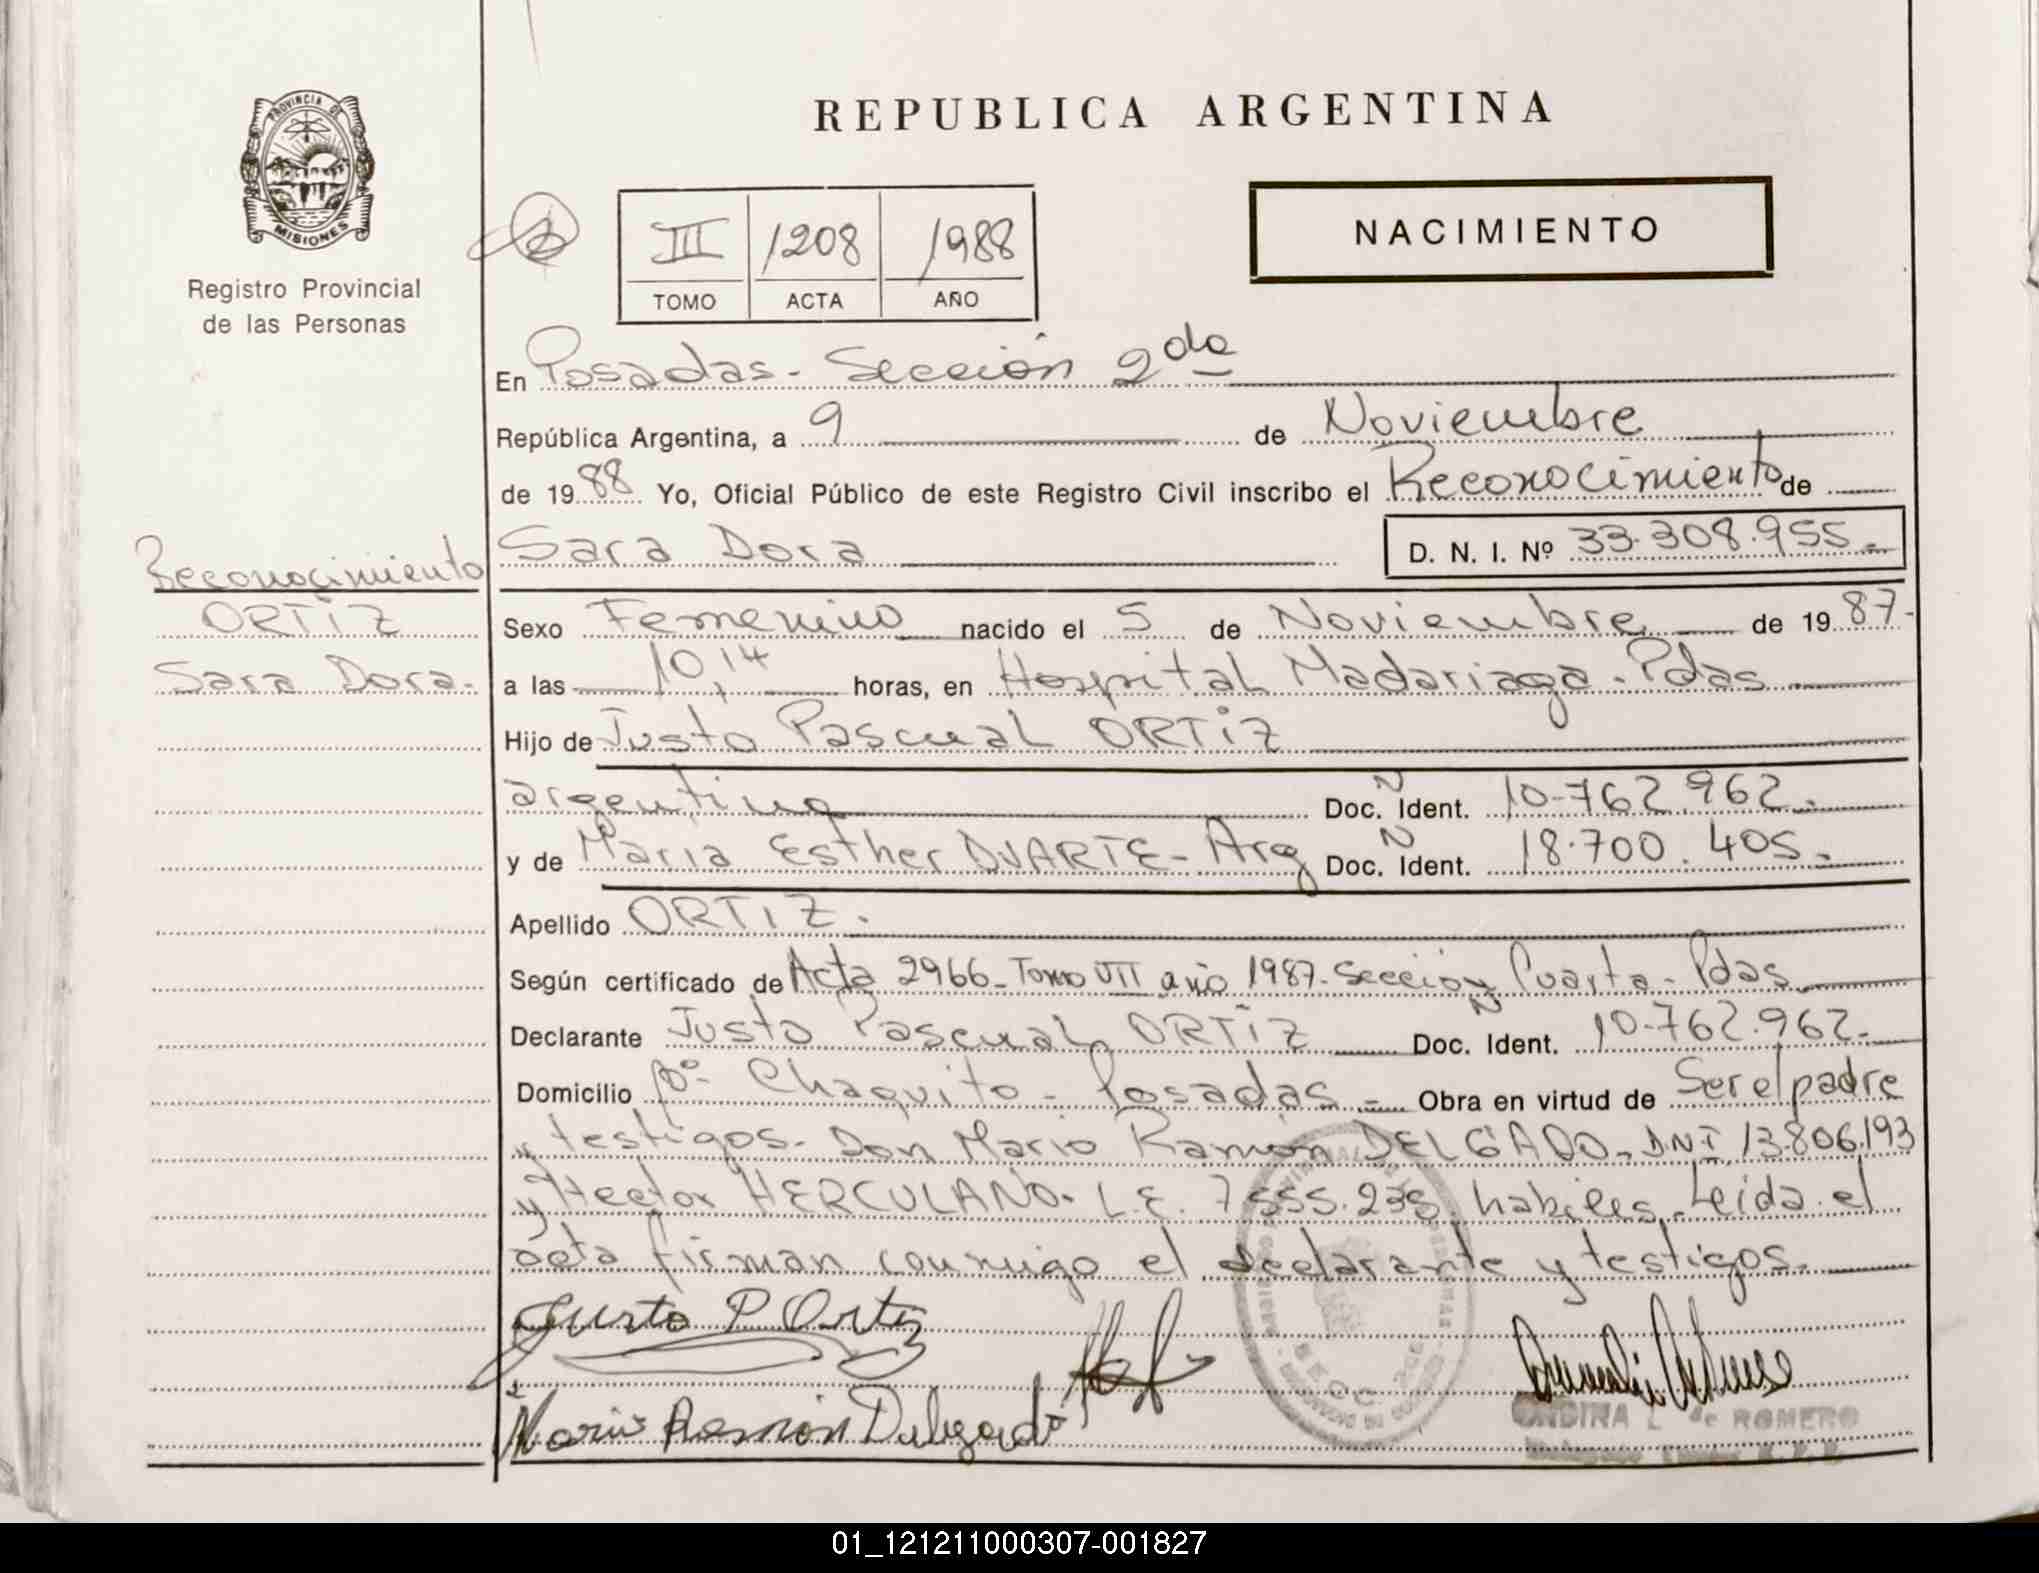 PROVINCIA DE
MISIONES
Registro Provincial
de las Personas
REPUBLICA ARGENTINA
III 1208 1988
TOMO ACTA AÑO
NACIMIENTO
En Posadas - Sección 2da
República Argentina, a 9 de Noviembre
de 1988 Yo, Oficial Público de este Registro Civil inscribo el Reconocimiento de
Sara Dora D. N. I. Nº 33.308.955.-
Reconocimiento
ORTIZ
Sara Dora.
Sexo Femenino nacido el 5 de Noviembre de 1987.
a las 10,14 horas, en Hospital Madariaga - Pdas
Hijo de Justo Pascual ORTIZ
argentino Doc. N Ident. 10.762.962.
y de Maria Esther DUARTE - Arg Doc. N Ident. 18.700.405.-
Apellido ORTIZ.
Según certificado de Acta 2966 - Tomo VII año 1987 - Sección Cuarta - Pdas
Declarante Justo Pascual ORTIZ Doc. N Ident. 10.762.962.-
Domicilio Bº Chaquito - Posadas - Obra en virtud de Ser el padre
y testigos - Don Mario Ramón DELGADO - DNI 13.806.193
y Hector HERCULANO - L.E. 7.555. habiles. Leida el
acta firman conmigo el declarante y testigos.
Justo P Ortiz
Mario Ramón Delgado
ONDINA L. de ROMERO
01_121211000307-001827